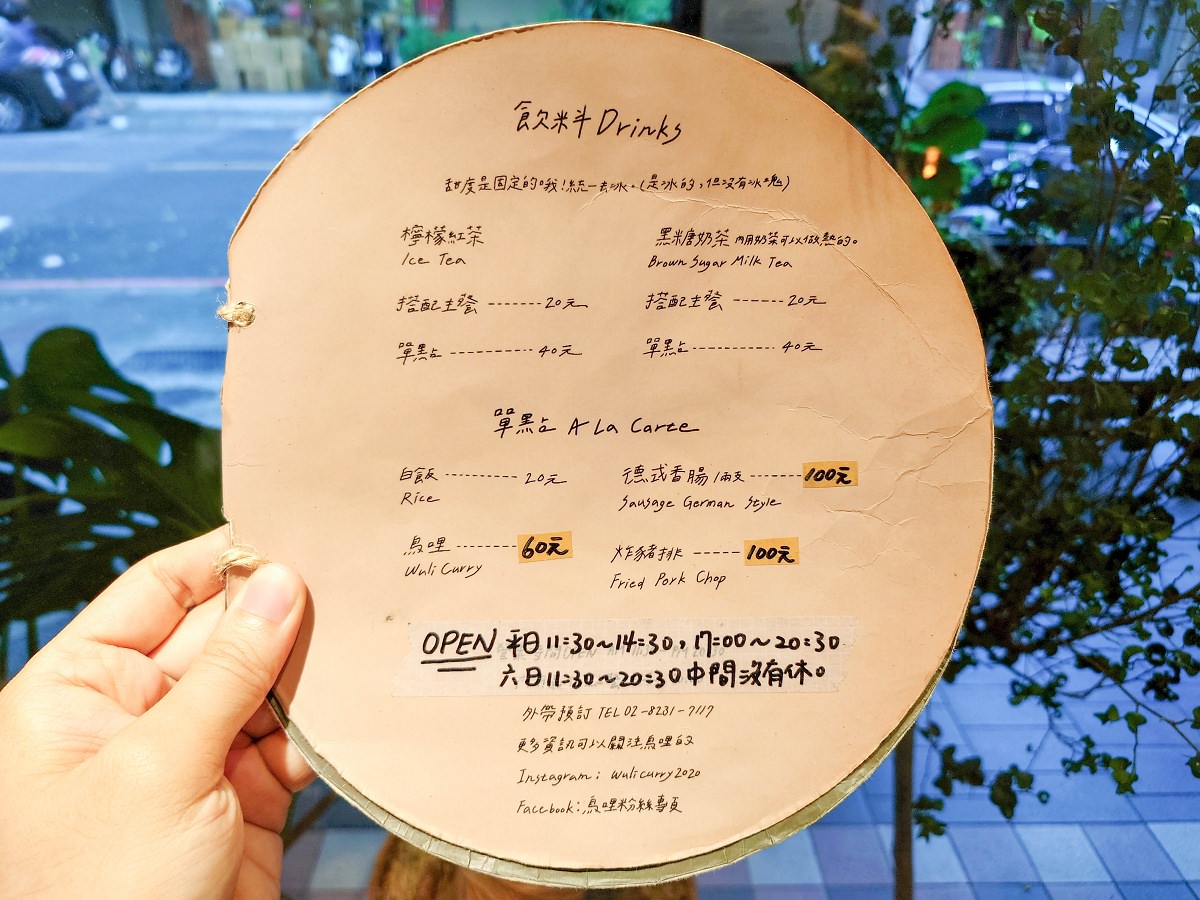 飲料 Drinks
甜度是固定的哦!統一去冰。(是冰的,但沒有冰塊)
檸檬紅茶
Ice Tea
搭配主餐 ------ 20元
單點 --------- 40元
黑糖奶茶 內用奶茶可以做熱的。
Brown Sugar Milk Tea
搭配主餐 ------ 20元
單點 --------- 40元
單點 A La Carte
白飯 --------- 20元
Rice
烏哩 ------- 60元
Wuli Curry
德式香腸/兩支 ------ 100元
Sausage German Style
炸豬排 ----- 100元
Fried Pork Chop
OPEN 平日11:30~14:30,17:00~20:30
六日11:30~20:30中間沒有休。
外帶預訂 TEL 02-8231-7117
更多資訊可以關注烏哩的
Instagram: wulicurry2020
Facebook:烏哩粉絲專頁